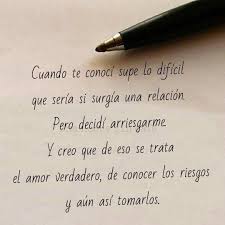 Cuando te conocí supe lo difícil
que sería si surgía una relación.
Pero decidí arriesgarme.
Y creo que de eso se trata
el amor verdadero, de conocer los riesgos
y aún así tomarlos.